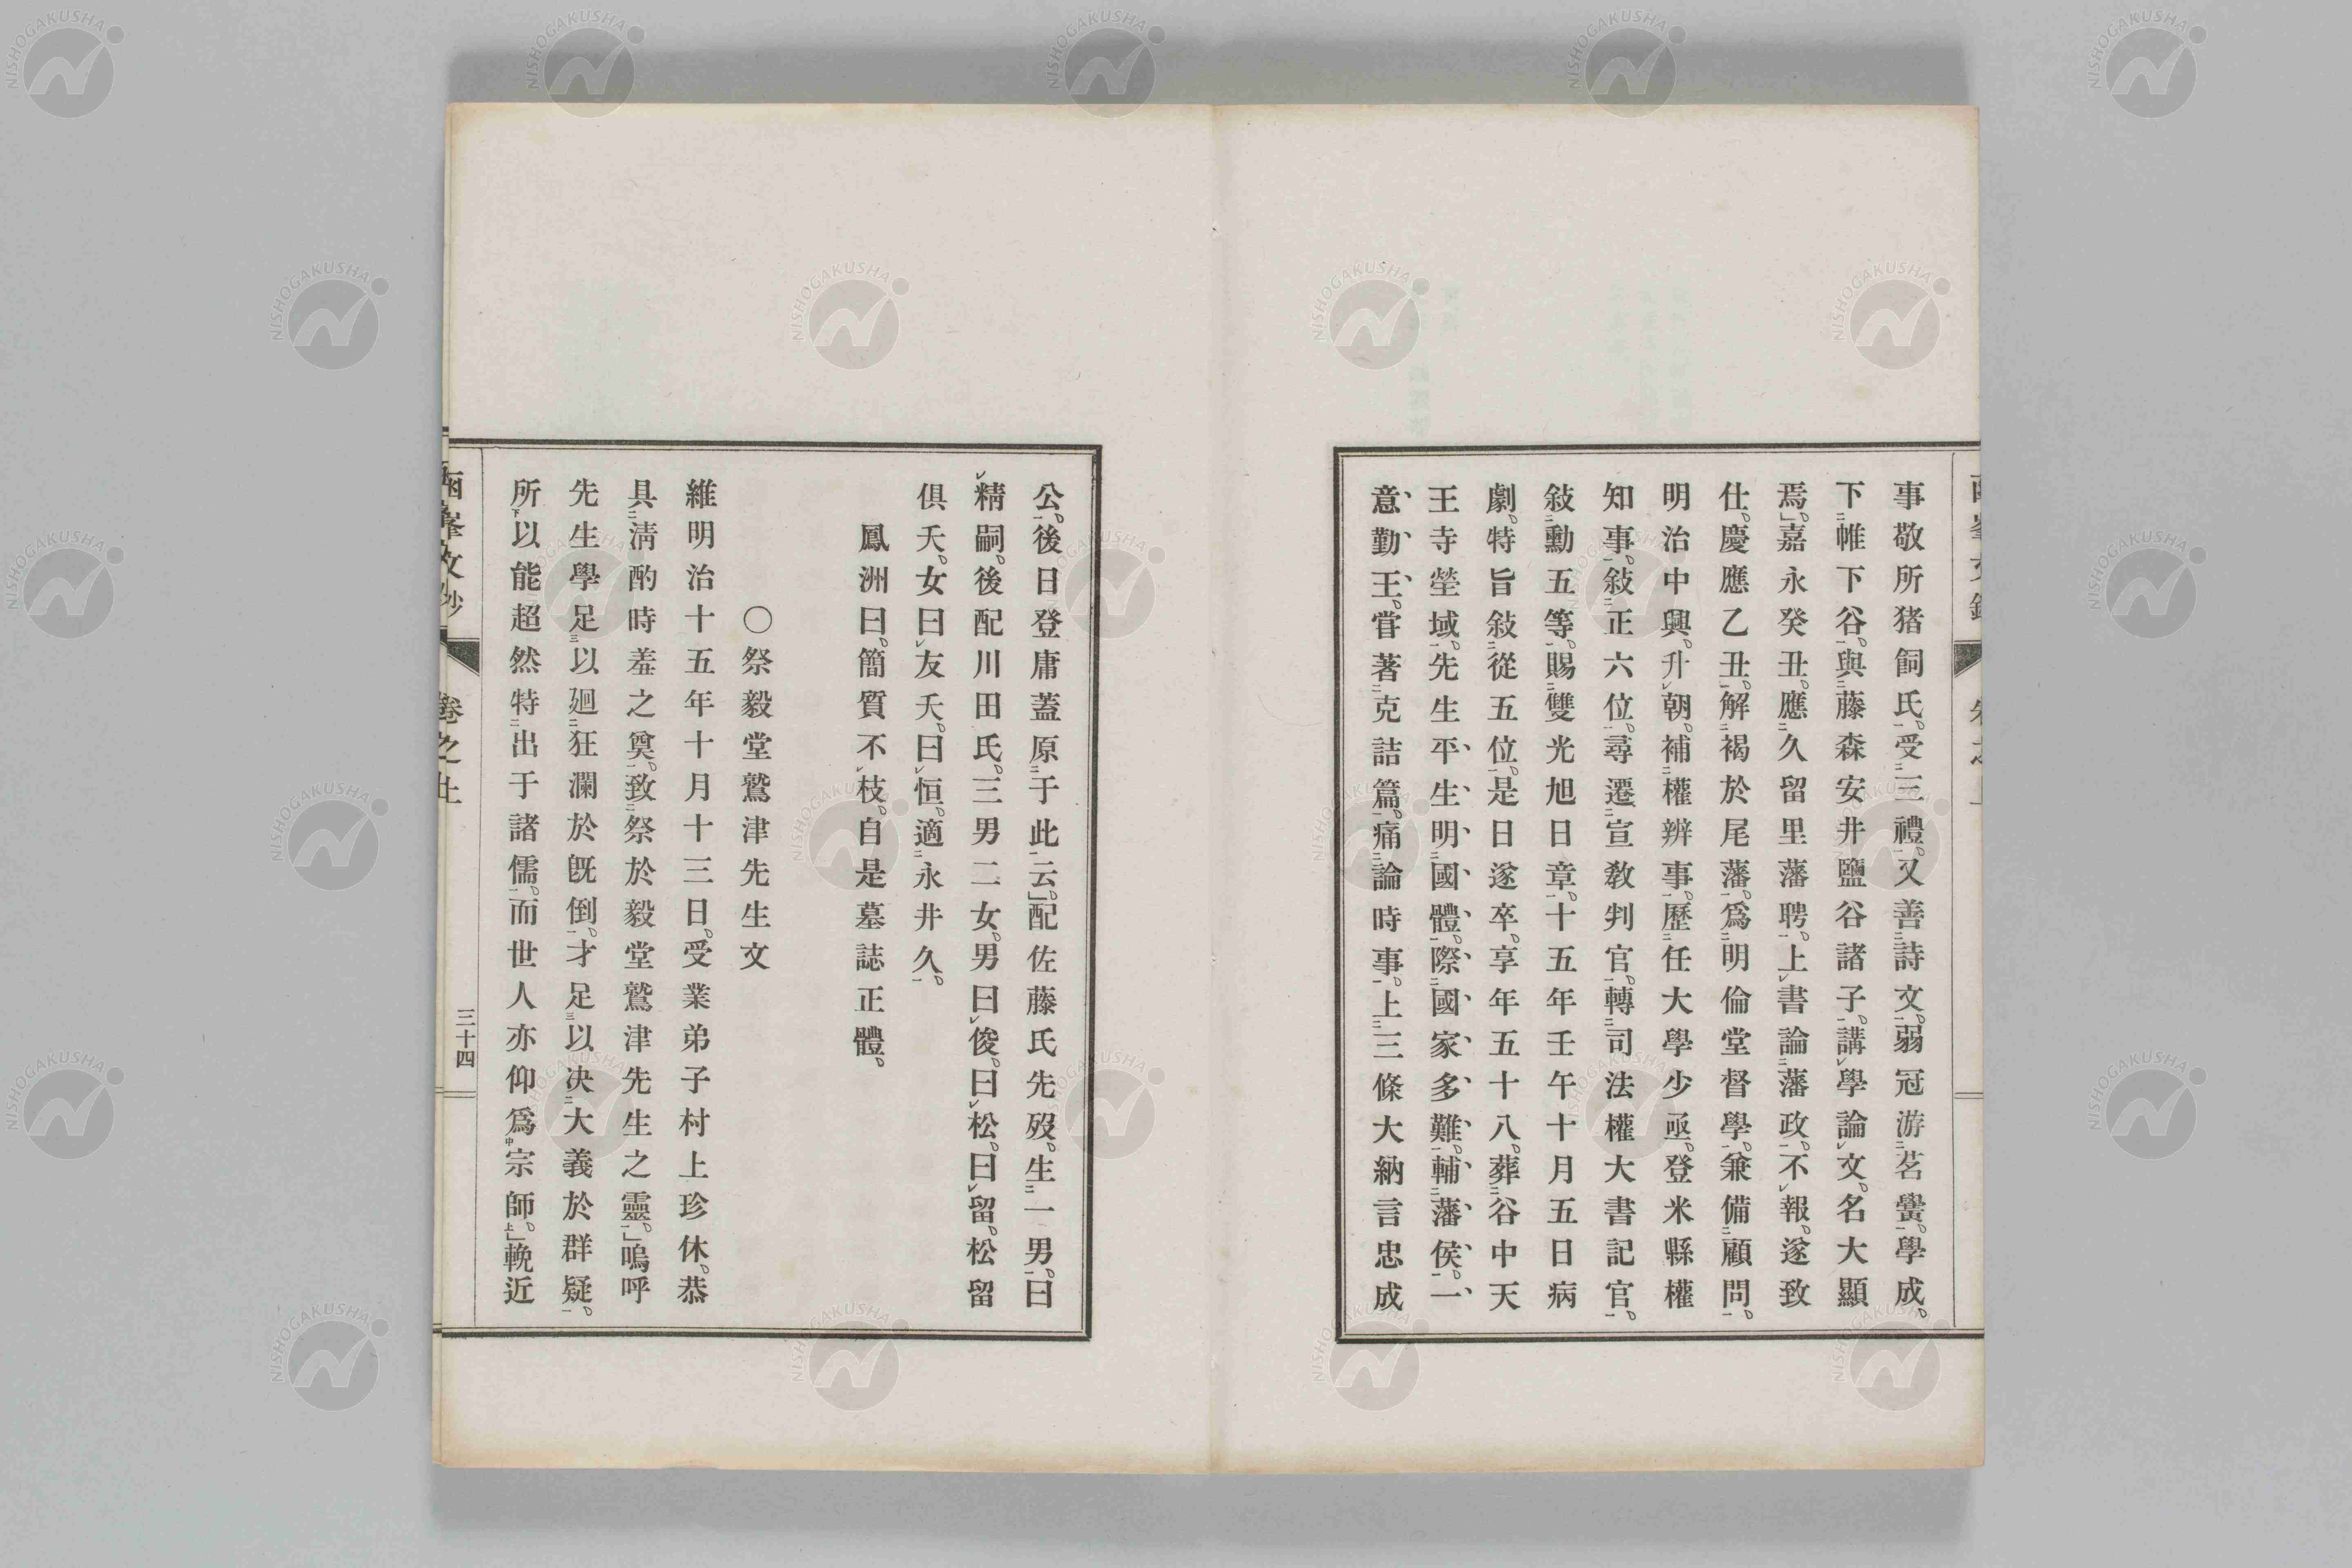 事敬所猪飼氏。受三禮。又善詩文。弱冠游茗黌。學成。
下帷下谷。與藤森安井鹽谷諸子。講學論文。名大顯
焉。嘉永癸丑。應久留里藩聘。上書論藩政。不報。遂致
仕。慶應乙丑。解褐於尾藩。爲明倫堂督學。兼備顧問。
明治中興。升朝。補權辨事。歷任大學少亟。登米縣權
知事。敍正六位。尋遷宣敎判官。轉司法權大書記官。
敍勳五等。賜雙光旭日章。十五年壬午十月五日病
劇。特旨敍從五位。是日遂卒。享年五十八。葬谷中天
王寺塋域。先生平生明國體。際國家多難。輔藩侯。一
意勤王。甞著克詰篇。痛論時事。上三條大納言忠成
公。後日登庸蓋原于此云。配佐藤氏先歿。生一男。曰
精嗣。後配川田氏。三男二女。男曰俊。曰松。曰留。松留
俱夭。女曰友夭。曰恒。適永井久。
鳳洲曰。簡質不枝。自是墓誌正體。
○祭毅堂鷲津先生文
維明治十五年十月十三日。受業弟子村上珍休。恭
具淸酌時羞之奠。致祭於毅堂鷲津先生之靈。嗚呼
先生學足以廻狂瀾於旣倒。才足以决大義於群疑。
所以能超然特出于諸儒。而世人亦仰爲宗師。輓近
函峯文鈔
卷之上
三十四
NISHOGAKUSHA